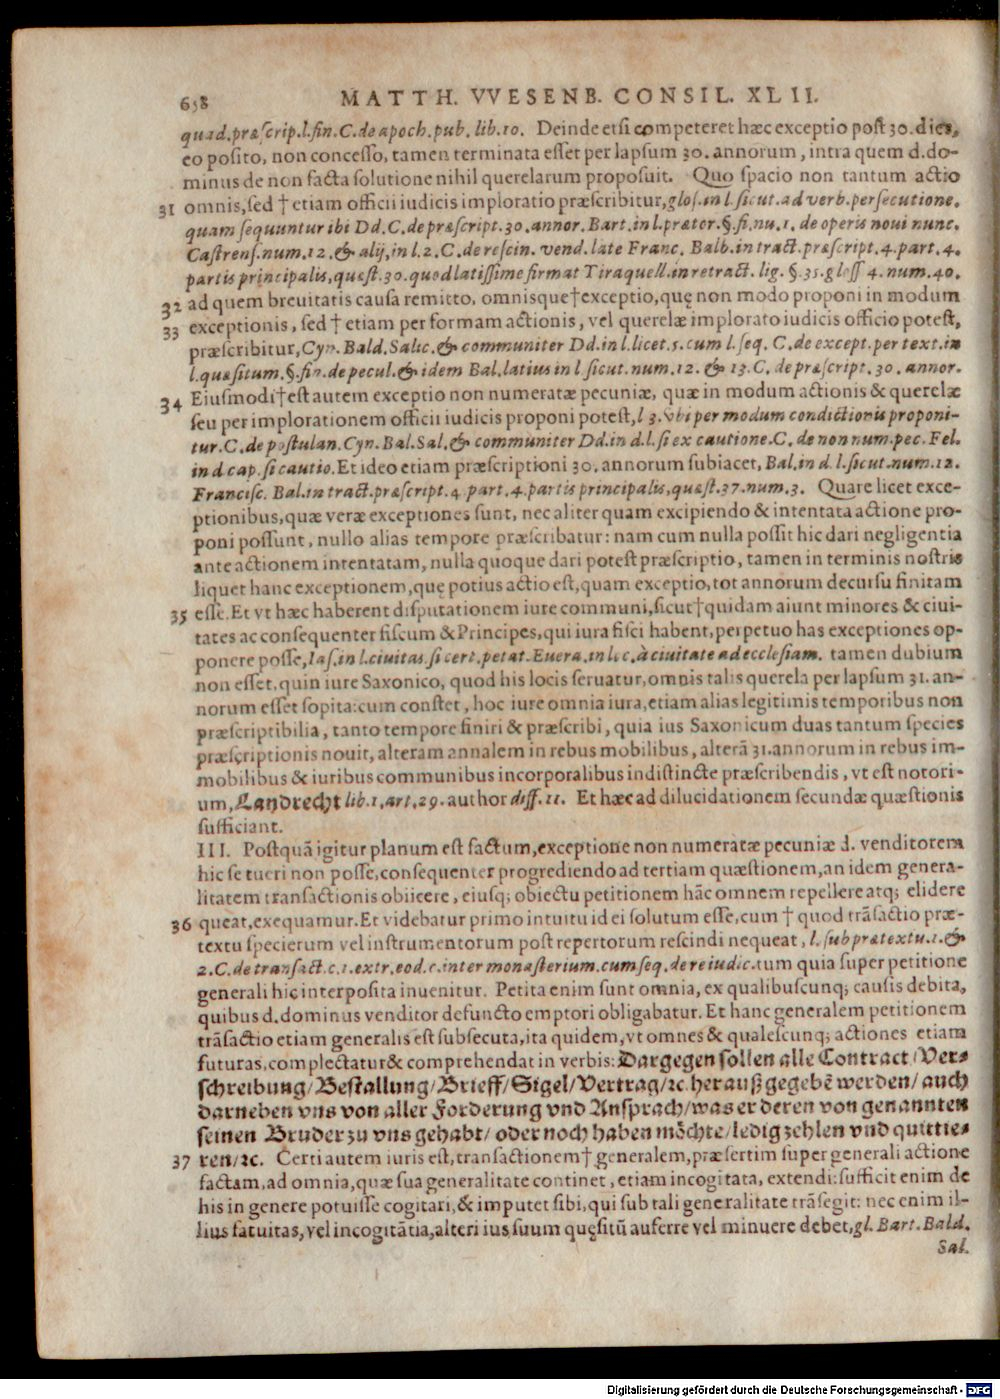 658 MATTH. VVESENB. CONSIL. XLII.
quad. præscrip. l. fin. C. de apoch. pub. lib. 10. Deinde etsi competeret hæc exceptio post 30. dies,
eo posito, non concesso, tamen terminata esset per lapsum 30. annorum, intra quem d. do-
minus de non facta solutione nihil querelarum proposuit. Quo spacio non tantum actio
31 omnis, sed † etiam officii iudicis imploratio præscribitur, glos. in l. sicut. ad verb. persecutione.
quam sequuntur ibi Dd. C. de præscript. 30. annor. Bart. in l. prætor. §. fi. nu. 1. de operis noui nunc.
Castrens. num. 12. & alij, in l. 2. C. de rescin. vend. late Franc. Balb. in tract. præscript. 4. part. 4.
partis principalis, quæst. 30. quod latissime firmat Tiraquell. in retract. lig. §. 35. gloss 4. num. 40.
32 ad quem breuitatis causa remitto, omnisque † exceptio, quę non modo proponi in modum
33 exceptionis, sed † etiam per formam actionis, vel querelæ implorato iudicis officio potest,
præscribitur, Cyn. Bald. Salic. & communiter Dd. in l. licet. 5. cum l. seq. C. de except. per text. in
l. quæsitum. §. fin. de pecul. & idem Bal. latius in l. sicut. num. 12. & 13. C. de præscript. 30. annor.
34 Eiusmodi † est autem exceptio non numeratæ pecuniæ, quæ in modum actionis & querelæ
seu per implorationem officii iudicis proponi potest, l 3. vbi per modum condictionis proponi-
tur. C. de postulan. Cyn. Bal. Sal. & communiter Dd. in d. l. si ex cautione. C. de non num. pec. Fel.
in d cap. si cautio. Et ideo etiam præscriptioni 30. annorum subiacet, Bal. in d. l. sicut. num. 12.
Francisc. Bal. in tract. præscript. 4 part. 4. partis principalis, quæst. 37. num. 3. Quare licet exce-
ptionibus, quæ veræ exceptiones sunt, nec aliter quam excipiendo & intentata actione pro-
poni possunt, nullo alias tempore præscribatur: nam cum nulla possit hic dari negligentia
ante actionem intentatam, nulla quoque dari potest præscriptio, tamen in terminis nostris
liquet hanc exceptionem, quę potius actio est, quam exceptio, tot annorum decursu finitam
35 esse. Et vt hæc haberent disputationem iure communi, sicut † quidam aiunt minores & ciui-
tates ac consequenter fiscum & Principes, qui iura fisci habent, perpetuo has exceptiones op-
ponere posse, Ias. in l. ciuitas. si cert. petat. Euera. in loc. à ciuitate ad ecclesiam. tamen dubium
non esset, quin iure Saxonico, quod his locis seruatur, omnis talis querela per lapsum 31. an-
norum esset sopita: cum constet, hoc iure omnia iura, etiam alias legitimis temporibus non
præscriptibilia, tanto tempore finiri & præscribi, quia ius Saxonicum duas tantum species
præscriptionis nouit, alteram annalem in rebus mobilibus, alterā 31. annorum in rebus im-
mobilibus & iuribus communibus incorporalibus indistincte præscribendis, vt est notori-
um, Landrecht lib. 1. art. 29. author diff. 11. Et hæc ad dilucidationem secundæ quæstionis
sufficiant.
III. Postquā igitur planum est factum, exceptione non numeratæ pecuniæ d. venditorem
hic se tueri non posse, consequenter progrediendo ad tertiam quæstionem, an idem genera-
litatem transactionis obiicere, eiusq; obiectu petitionem hāc omnem repellere atq; elidere
36 queat, exequamur. Et videbatur primo intuitu id ei solutum esse, cum † quod trāsactio præ-
textu specierum vel instrumentorum post repertorum rescindi nequeat, l. sub prætextu. 1. &
2. C. de transact. c. 1. extr. eod. c. inter monasterium. cum seq. de re iudic. tum quia super petitione
generali hic interposita inuenitur. Petita enim sunt omnia, ex qualibuscunq; causis debita,
quibus d. dominus venditor defuncto emptori obligabatur. Et hanc generalem petitionem
trāsactio etiam generalis est subsecuta, ita quidem, vt omnes & qualescunq; actiones etiam
futuras, complectatur & comprehendat in verbis: Dargegen sollen alle Contract / Ver-
schreibung / Bestallung / Brieff / Sigel / Vertrag / ꝛc. herauß gegebē werden / auch
darneben vns von aller Forderung vnd Ansprach / was er deren von genannten
seinen Bruder zu vns gehabt / oder noch haben möchte / ledig zehlen vnd quittie-
37 ren / ꝛc. Certi autem iuris est, transactionem † generalem, præsertim super generali actione
factam, ad omnia, quæ sua generalitate continet, etiam incogitata, extendi: sufficit enim de
his in genere potuisse cogitari, & imputet sibi, qui sub tali generalitate trāsegit: nec enim il-
lius fatuitas, vel incogitātia, alteri ius suum quęsitū auferre vel minuere debet, gl. Bart. Bald.
Sal.
Digitalisierung gefördert durch die Deutsche Forschungsgemeinschaft - DFG